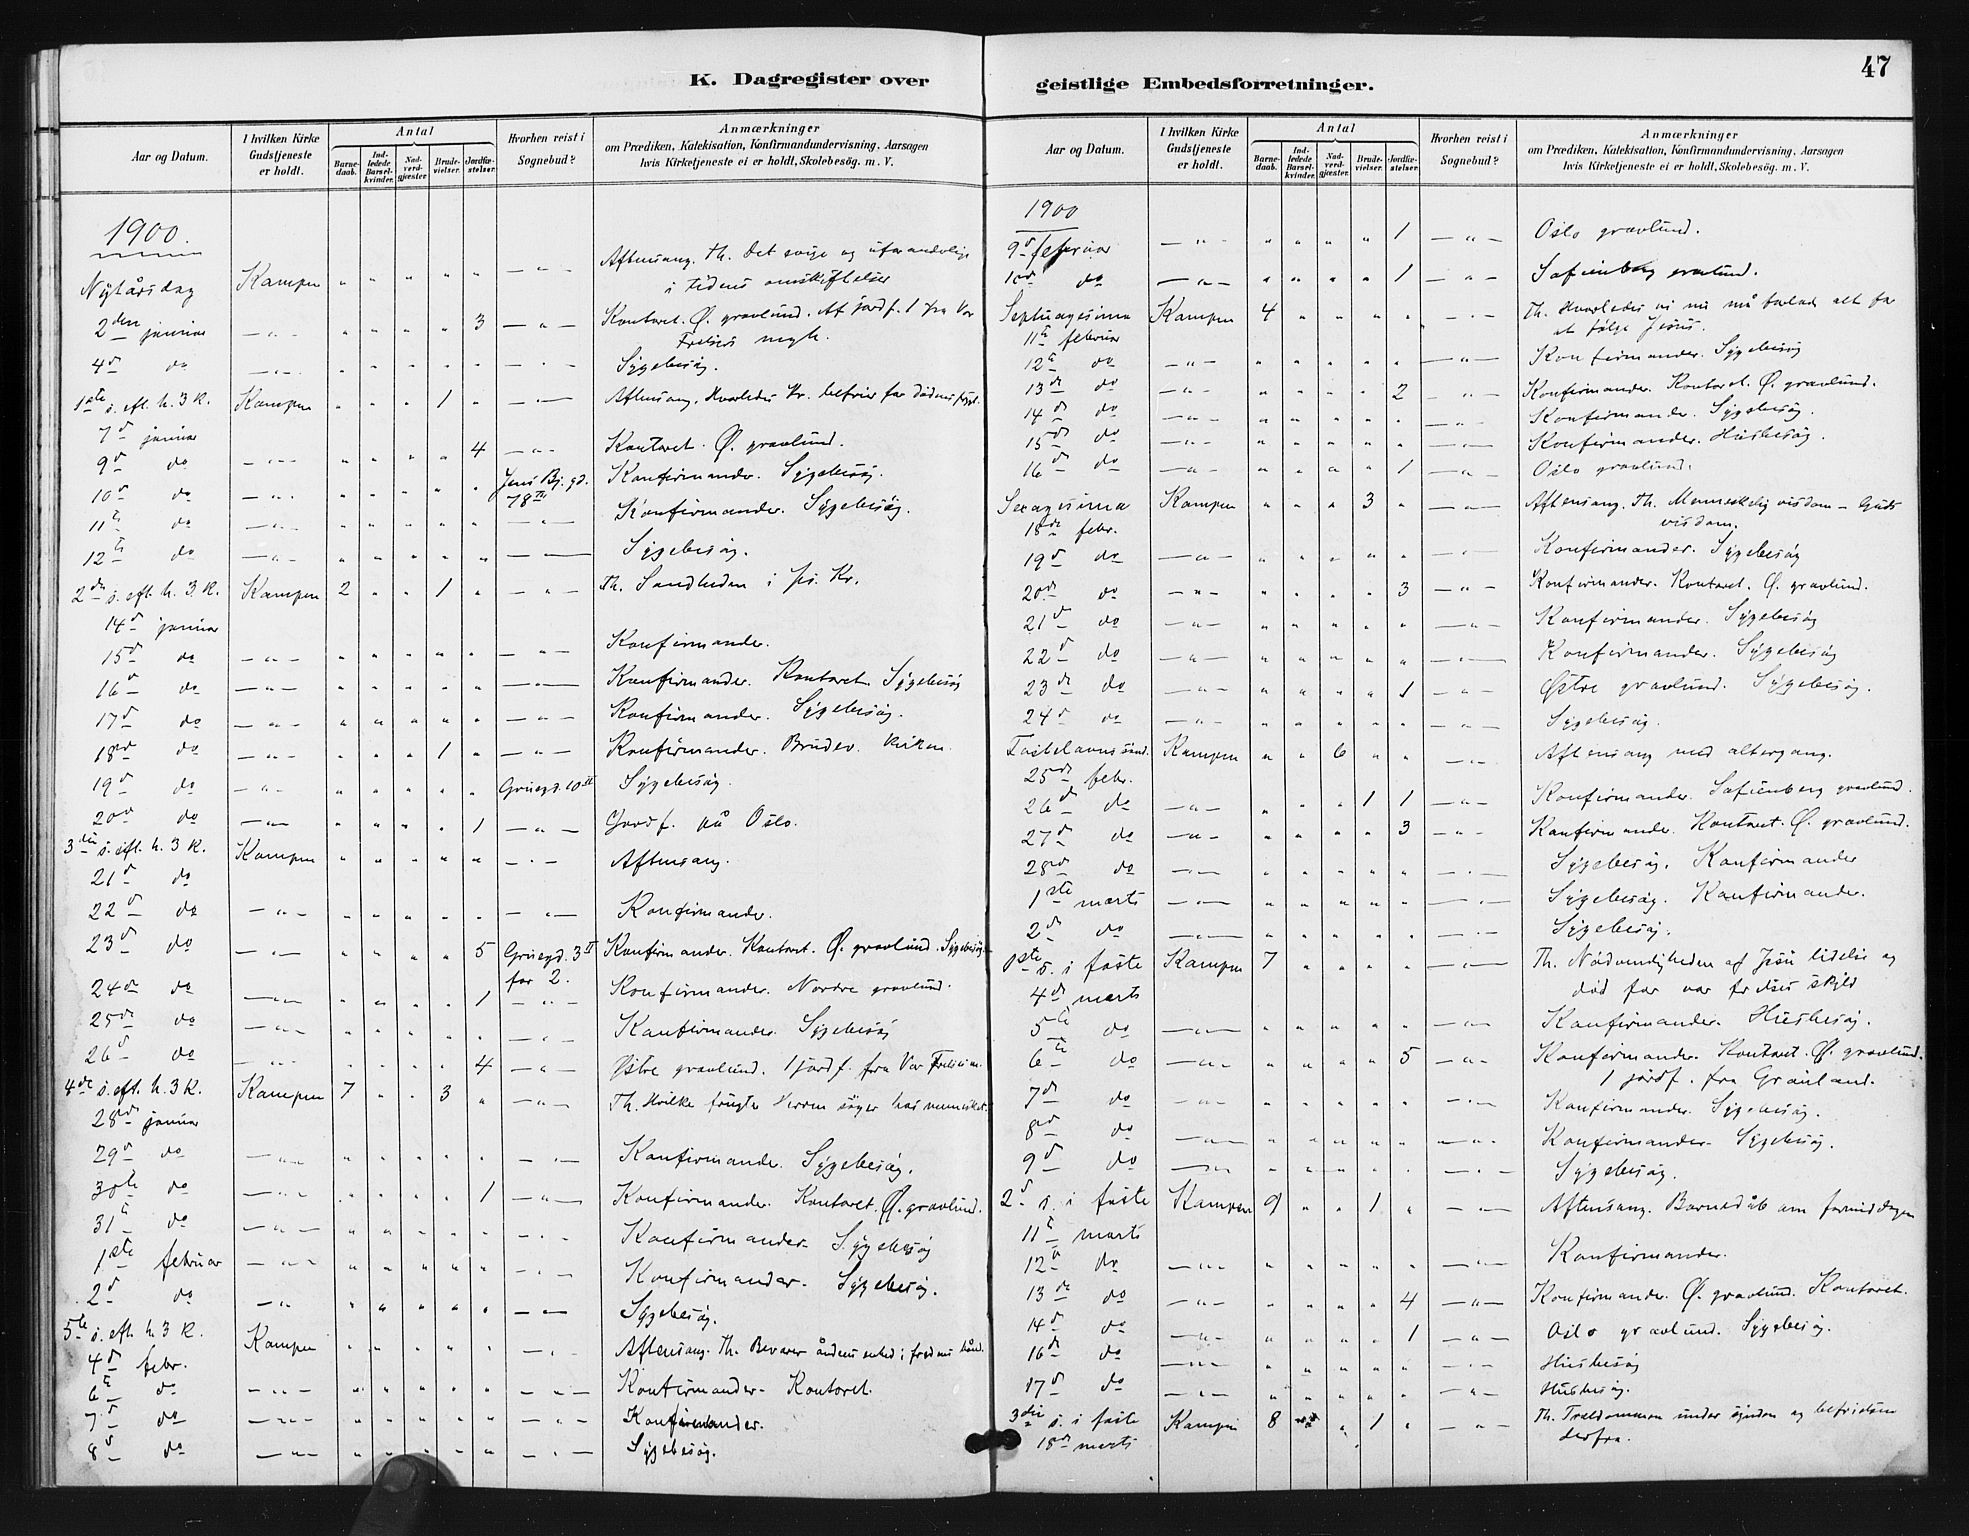 K. Dagregister over geistlige Embedsforretninger.
47
Aar og Datum. I hvilken Kirke Gudstjeneste er holdt. Antal Barnedaab. Indledede Barselkvinder. Nadverdgjæster. Brudevielser. Jordfæstelser. Hvorhen reist i Sognebud? Anmærkninger om Prædiken, Katekisation, Konfirmandundervisning, Aarsagen hvis Kirketjeneste ei er holdt, Skolebesög. m. V.
1900.
Nytårsdag Kampen " " " " " — " — Aftensang. Th. Det evige og uforanderlige
i tidens omskiftelser
2den januar — " — " " " " 3 — " — Kontoret. Ø. gravlund. Af jordf. 1 fra Vor
Frelsers megh.
4d do — " — " " " " " — " — Sygebesøg.
1ste s. eft. h. 3 K. Kampen " " " 1 " — " — Aftensang. Hvorledes Kr. befrier for dødens frygt.
7d januar
9d do — " — " " " " 4 — " — Kontoret. Ø. gravlund.
10d do — " — " " " " " Jens Bj. gd. 78 III Konfirmander. Sygebesøg.
11te do — " — " " " " " — " — Konfirmander. Sygebesøg.
12te do — " — " " " " " — " — Sygebesøg.
2den s. eft. h. 3 K. Kampen 2 " " 1 " — " — Th. Sandheden i Jes. Kr.
14d januar
15d do — " — " " " " " — " — Konfirmander.
16d do — " — " " " " " — " — Konfirmander. Kontoret. Sygebesøg
17d do — " — " " " " " — " — Konfirmander. Sygebesøg.
18de do — " — " " " 1 " — " — Konfirmander. Brudev. kirken.
19d do — " — " " " " " Gruegd. 10 II Sygebesøg.
20de do — " — " " " " 1 — " — Jordf. på Oslo.
3die s. eft. h. 3 K. Kampen " " " " " — " — Aftensang.
21d do
22d do — " — " " " " " — " — Konfirmander.
23d do — " — " " " " 5 Gruegd. 3 II for 2. Konfirmander. Kontoret. Ø. gravlund. Sygebesøg.
24de do — " — " " " " 1 — " — Konfirmander. Nordre gravlund.
25de do — " — " " " " " — " — Konfirmander. Sygebesøg
26d do — " — " " " " 4 — " — Østre gravlund. 1 jordf. fra Vor Frelser m.
4de s. eft. h. 3 K. Kampen 7 " " 3 " — " — Th. Hvilke frugter Herren søger hos mennesket.
28de januar
29d do — " — " " " " " — " — Konfirmander. Sygebesøg.
30te do — " — " " " " 1 — " — Konfirmander. Kontoret. Ø. gravlund.
31te do — " — " " " " " — " — Konfirmander. Sygebesøg
1ste februar — " — " " " " " — " — Konfirmander. Sygebesøg.
2d do — " " " " " " — " — Sygebesøg.
5te s. eft. h. 3 K. Kampen " " " " " — " — Aftensang. Th. Bevarer åndens enhed i fredens bånd.
4d febr.
6te do — " — " " " " " — " — Konfirmander. Kontoret.
7d do — " — " " " " " — " — Konfirmander.
8d do — " — " " " " " — " — Sygebesøg.
Aar og Datum. I hvilken Kirke Gudstjeneste er holdt. Antal Barnedaab. Indledede Barselkvinder. Nadverdgjæster. Brudevielser. Jordfæstelser. Hvorhen reist i Sognebud? Anmærkninger om Prædiken, Katekisation, Konfirmandundervisning, Aarsagen hvis Kirketjeneste ei er holdt, Skolebesög. m. V.
1900
9d februar — " — " " " " 1 — " — Oslo gravlund.
10d do — " — " " " " 1 — " — Sofienberg gravlund.
Septuagesima Kampen 4 " " " " — " — Th. Hvorledes vi nu må forlade alt for
at følge Jesus.
11te februar
12te do — " — " " " " " — " — Konfirmander. Sygebesøg
13de do — " — " " " " 2 — " — Konfirmander. Kontoret. Ø. gravlund.
14de do — " — " " " " " — " — Konfirmander. Sygebesøg.
15de do — " — " " " " " — " — Konfirmander. Husbesøg.
16d do — " — " " " " 1 — " — Oslo gravlund.
Sexagesima Kampen " " " 3 " — " — Aftensang. Th. Menneskelig visdom – Guds
visdom.
18de febr.
19d do — " — " " " " " — " — Konfirmander. Sygebesøg
20de do — " — " " " " 3 — " — Konfirmander. Kontoret. Ø. gravlund.
21d do — " — " " " " " — " — Konfirmander. Sygebesøg
22d do — " — " " " " " — " — Konfirmander. Sygebesøg
23de do — " — " " " " 1 — " — Østre gravlund. Sygebesøg.
24d do — " — " " " " " — " — Sygebesøg.
Fastelavnssønd. Kampen " " 6 " " — " — Aftensang med altergang.
25de febr.
26d do — " — " " " 1 1 — " — Konfirmander. Sofienberg gravlund.
27d do — " — " " " " 3 — " — Konfirmander. Kontoret. Ø. gravlund.
28de do — " — " " " " " — " — Sygebesøg. Konfirmander
1ste marts — " — " " " " " — " — Sygebesøg. Konfirmander.
2d do — " — " " " " " — " — Sygebesøg.
1ste s. i faste Kampen 7 " " " " — " — Th. Nødvendigheden af Jesu lidelse og
død for vor frelses skyld
4de marts
5te do — " — " " " " " — " — Konfirmander. Husbesøg.
6te do — " — " " " " 5 — " — Konfirmander. Kontoret. Ø. gravlund.
1 jordf. fra Grønland.
7de do — " — " " " " " — " — Konfirmander. Sygebesøg.
8de do — " — " " " " " — " — Konfirmander. Sygebesøg.
9d do — " — " " " " " — " — Sygebesøg.
2d s. i faste Kampen 9 " " 1 " — " — Aftensang. Barnedåb om formiddagen
11te marts
12te do — " — " " " " " — " — Konfirmander.
13de do — " — " " " " 4 — " — Konfirmander. Ø. gravlund. Kontoret.
14de do — " — " " " " 1 — " — Oslo gravlund. Sygebesøg.
16de do — " — " " " " " — " — Husbesøg
17d do — " — " " " " " — " — Husbesøg.
3die s. i faste Kampen 8 " " 1 " — " — Th. Trældommen under synden og befrielsen
derfra.
18de marts